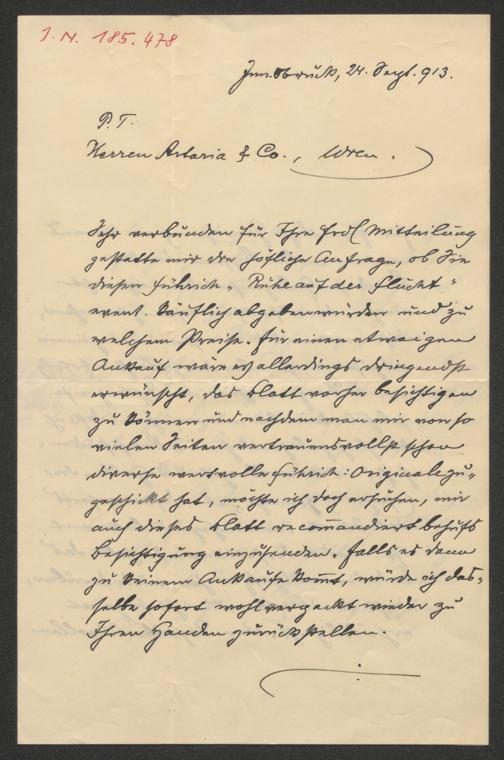 J. N. 185.478
Innsbruck, 24. Sept. 913.
P. T.
Herren Artaria & Co., Wien.
Sehr verbunden für Ihre frdl. Mitteilung
gestatte mir die höfliche Anfrage, ob Sie
diesen Führich „Ruhe auf der Flucht"
event. käuflich abgeben würden und zu
welchem Preise. Für einen etwaigen
Ankauf wäre es allerdings dringendst
erwünscht, das Blatt vorher besichtigen
zu können und nachdem man mir von so
vielen Seiten vertrauensvollst schon
diverse wertvolle Führich: Originale zu„
geschickt hat, möchte ich doch ersuchen, mir
auch dieses Blatt recommandiert behufs
Besichtigung einzusenden. Falls es dann
zu keinem Ankaufe kommt, würde ich das„
selbe sofort wohlverpackt wieder zu
Ihren Handen zurückstellen.